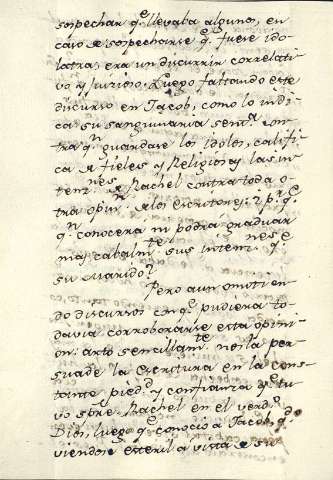 sospechar q.e llevaba alguno, en
caso de sospecharse q.e fuere ido-
latra, era un discurrir correlati-
vo y juicioso. Luego faltando este
discurso en Jacob, como lo indi-
ca su sanguinaria sent.a con-
tra q.n guardase los idolos, califi-
ca de fieles y Religiosas las in-
tenz.nes de Rachel contra toda o-
tra opin.n de los escritores: i p.r q.e
q.n conocerá ni podrá graduar
mas cabalm.te sus intenz.nes q.e
su marido?
Pero aun omitien-
do discursos con q.e pudiera to-
davia corroborarse esta opini-
on: arto sencillam.te nos la per-
suade la Escritura en la cons-
tante pied.d y confianza q.e tu-
vo s̃pre Rachel en el verd.o
Dios, luego q.e conocio a Jacob, q.do
viendose esteril a vista de su